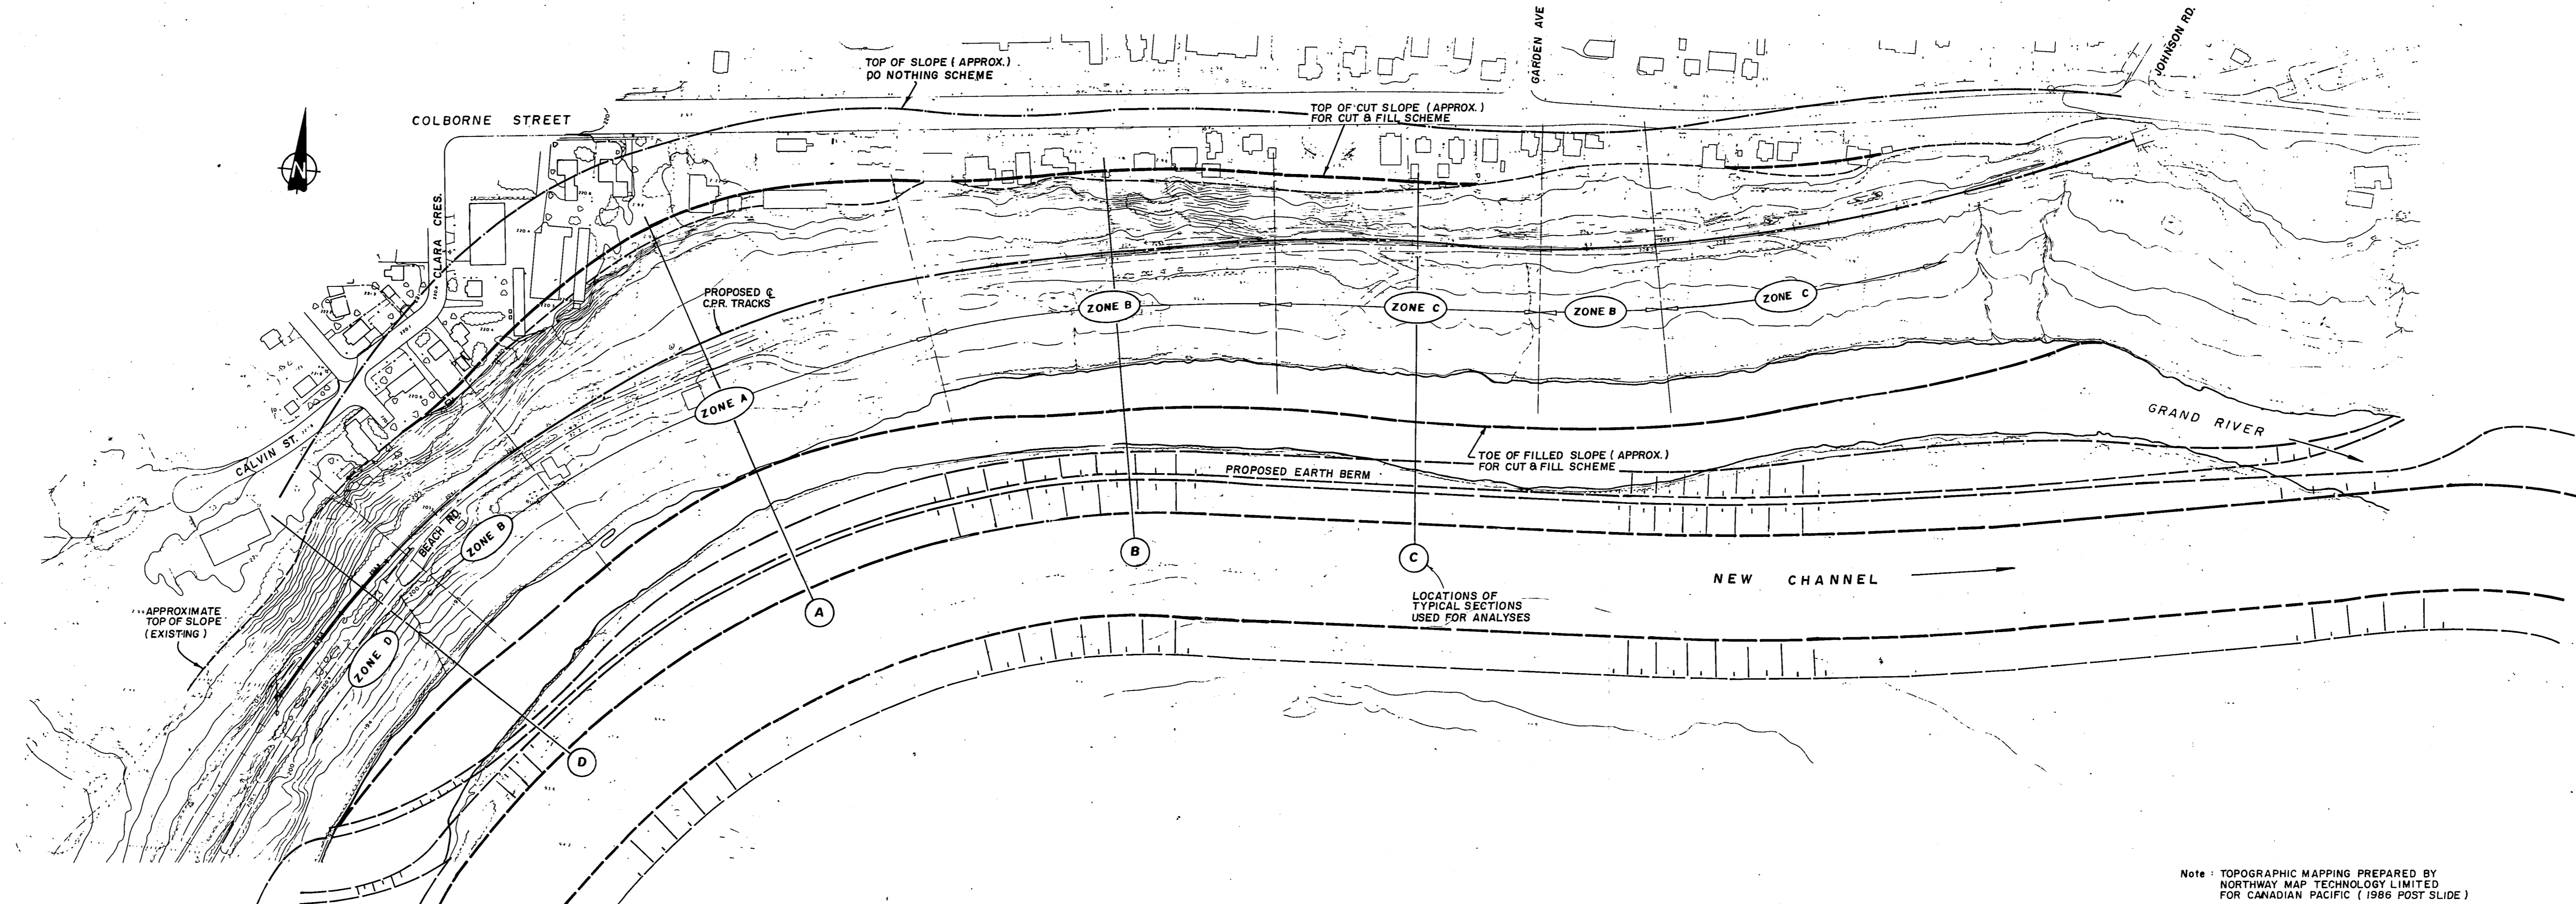 GARDEN AVE
JOHNSON RD.
TOP OF SLOPE ( APPROX.)
DO NOTHING SCHEME
TOP OF CUT SLOPE (APPROX.)
FOR CUT & FILL SCHEME
COLBORNE STREET
N
CLARA CRES.
PROPOSED ℄
C.P.R. TRACKS
ZONE B
ZONE C
ZONE B
ZONE C
ZONE A
GRAND RIVER
CALVIN ST.
TOE OF FILLED SLOPE ( APPROX.)
FOR CUT & FILL SCHEME
PROPOSED EARTH BERM
BEACH RD.
ZONE B
B
C
NEW CHANNEL
LOCATIONS OF
TYPICAL SECTIONS
USED FOR ANALYSES
A
APPROXIMATE
TOP OF SLOPE
(EXISTING)
ZONE D
D
Note : TOPOGRAPHIC MAPPING PREPARED BY
NORTHWAY MAP TECHNOLOGY LIMITED
FOR CANADIAN PACIFIC ( 1986 POST SLIDE )